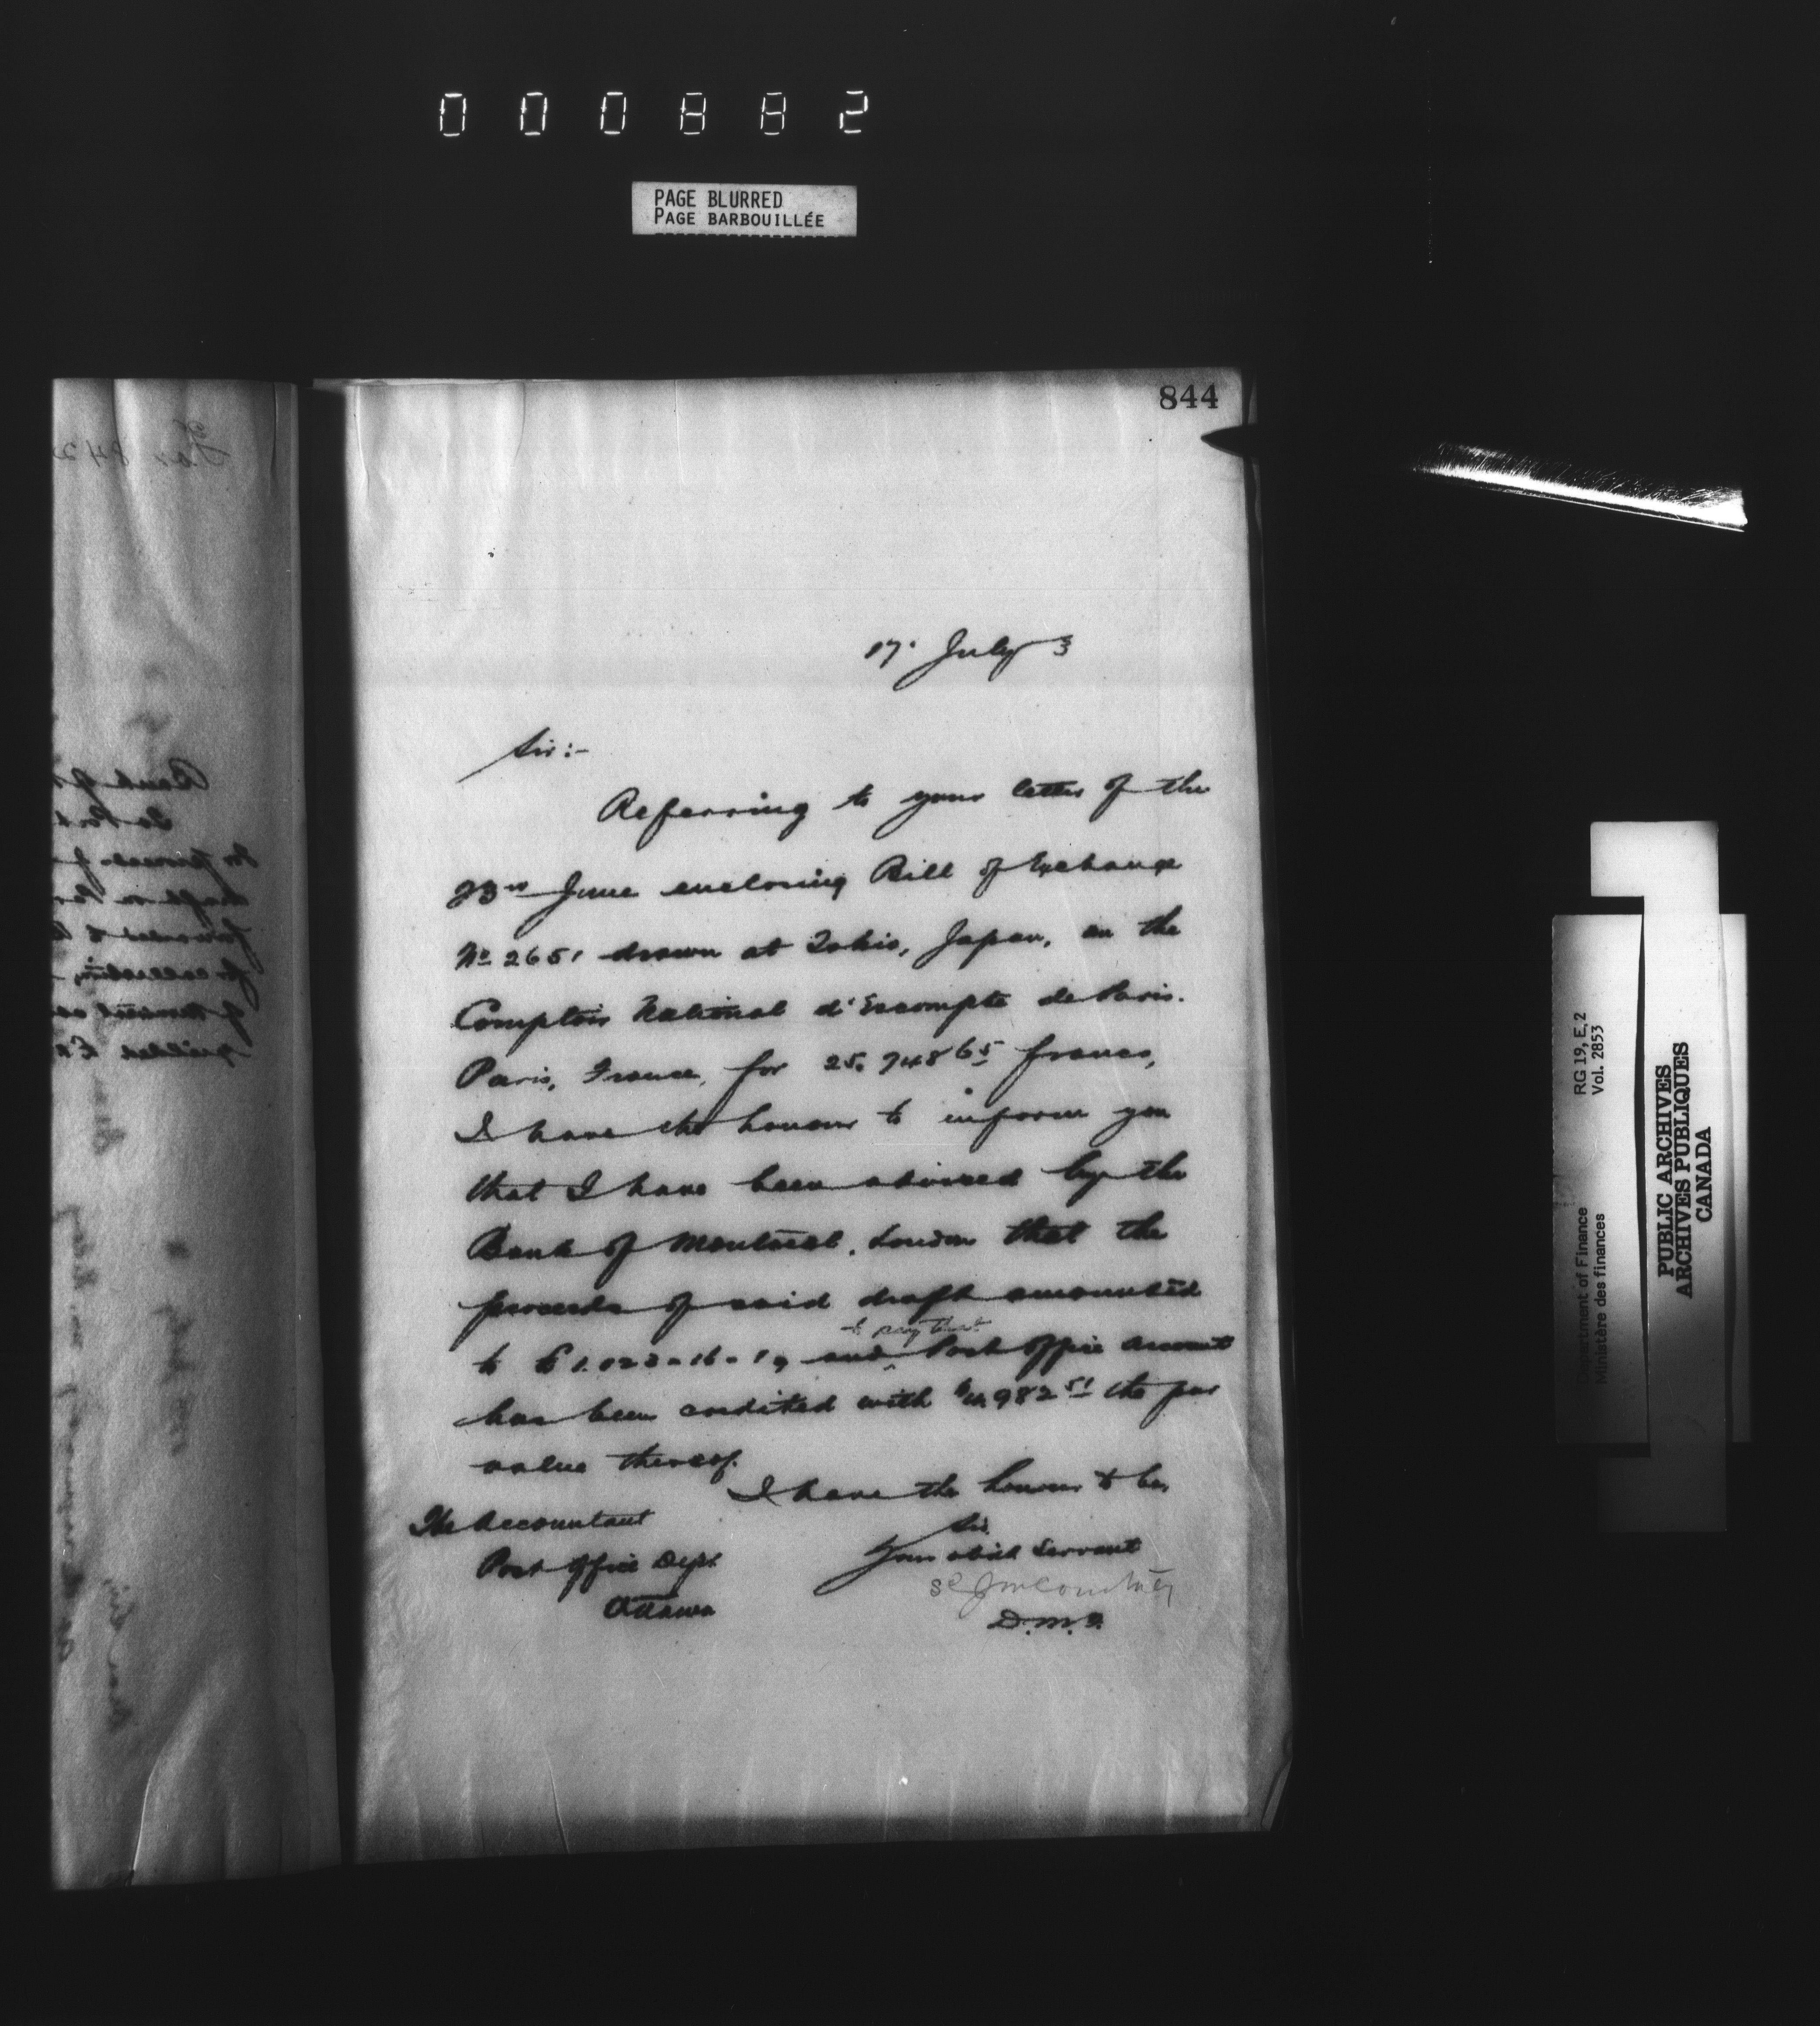 000882
PAGE BLURRED
PAGE BARBOUILLÉE
844
17. July 3
Sir:-
Referring to your letter of the
23rd June enclosing Bill of Exchange
No 2651 drawn at Tokio, Japan, on the
Comptoir National d'Escompte de Paris.
Paris, France, for 25,748 65 francs,
I have the honour to inform you
that I have been advised by the
Bank of Montreal, London that the
proceeds of said draft amounted
to £1.023-16-1, and Post Office Account
has been credited with $4,982 51 the par
value thereof.
I have the honour to be,
Sir,
Your obdt Servant
Sd J M Courtney
D.M.F.
The Accountant
Post Office Dept.
Ottawa
Department of Finance
Ministère des finances
RG 19, E.2
Vol. 2853
PUBLIC ARCHIVES
ARCHIVES PUBLIQUES
CANADA